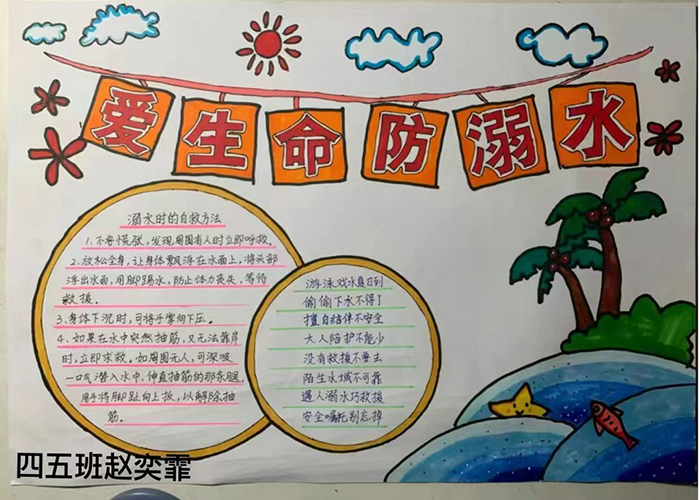 爱生命防溺水
溺水时的自救方法
1、不要慌张，发现周围有人时立即呼救。
2、放松全身，让身体飘浮在水面上，将头部
浮出水面，用脚踢水，防止体力丧失、等待
救援。
3、身体下沉时，可将手掌向下压。
4、如果在水中突然抽筋，又无法靠岸
时，立即求救。如周围无人，可深吸
一口气潜入水中，伸直抽筋的那条腿，
用手将脚趾向上扳，以解除抽
筋。
游泳戏水夏日到
偷偷下水不得了
擅自结伴不安全
大人陪护不能少
没有救援不要去
陌生水域不可靠
遇人溺水巧救援
安全嘱托别忘掉
四五班赵奕霏